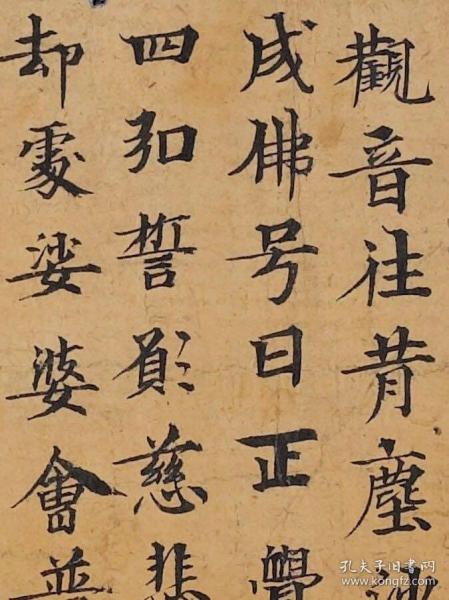 觀音往昔塵
成佛号曰正覺
四弘誓願慈悲
却處娑婆會
孔夫子旧书网
www.kongfz.com